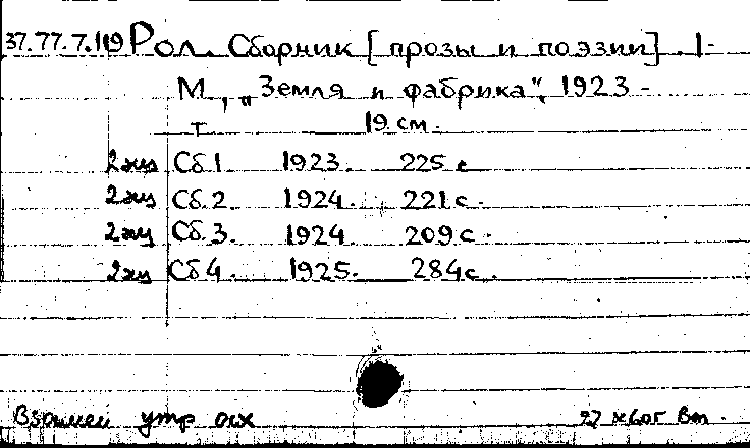 37.77.7.119 Рол. Сборник [прозы и поэзии]. 1-
М, „Земля и фабрика“, 1923 -
т 19 см.
2 экз Сб.1 1923. 225 с
2 экз Сб.2. 1924. 221 с.
2 экз Сб.3. 1924 209 с.
2 экз Сб4. 1925. 284 с.
Взамен утр